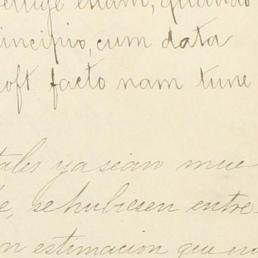 etiam, quando
incipio, cum data
oft facto nam tunc
tales ya sean mue
e, se hubiesen entre-
n estimacion que no